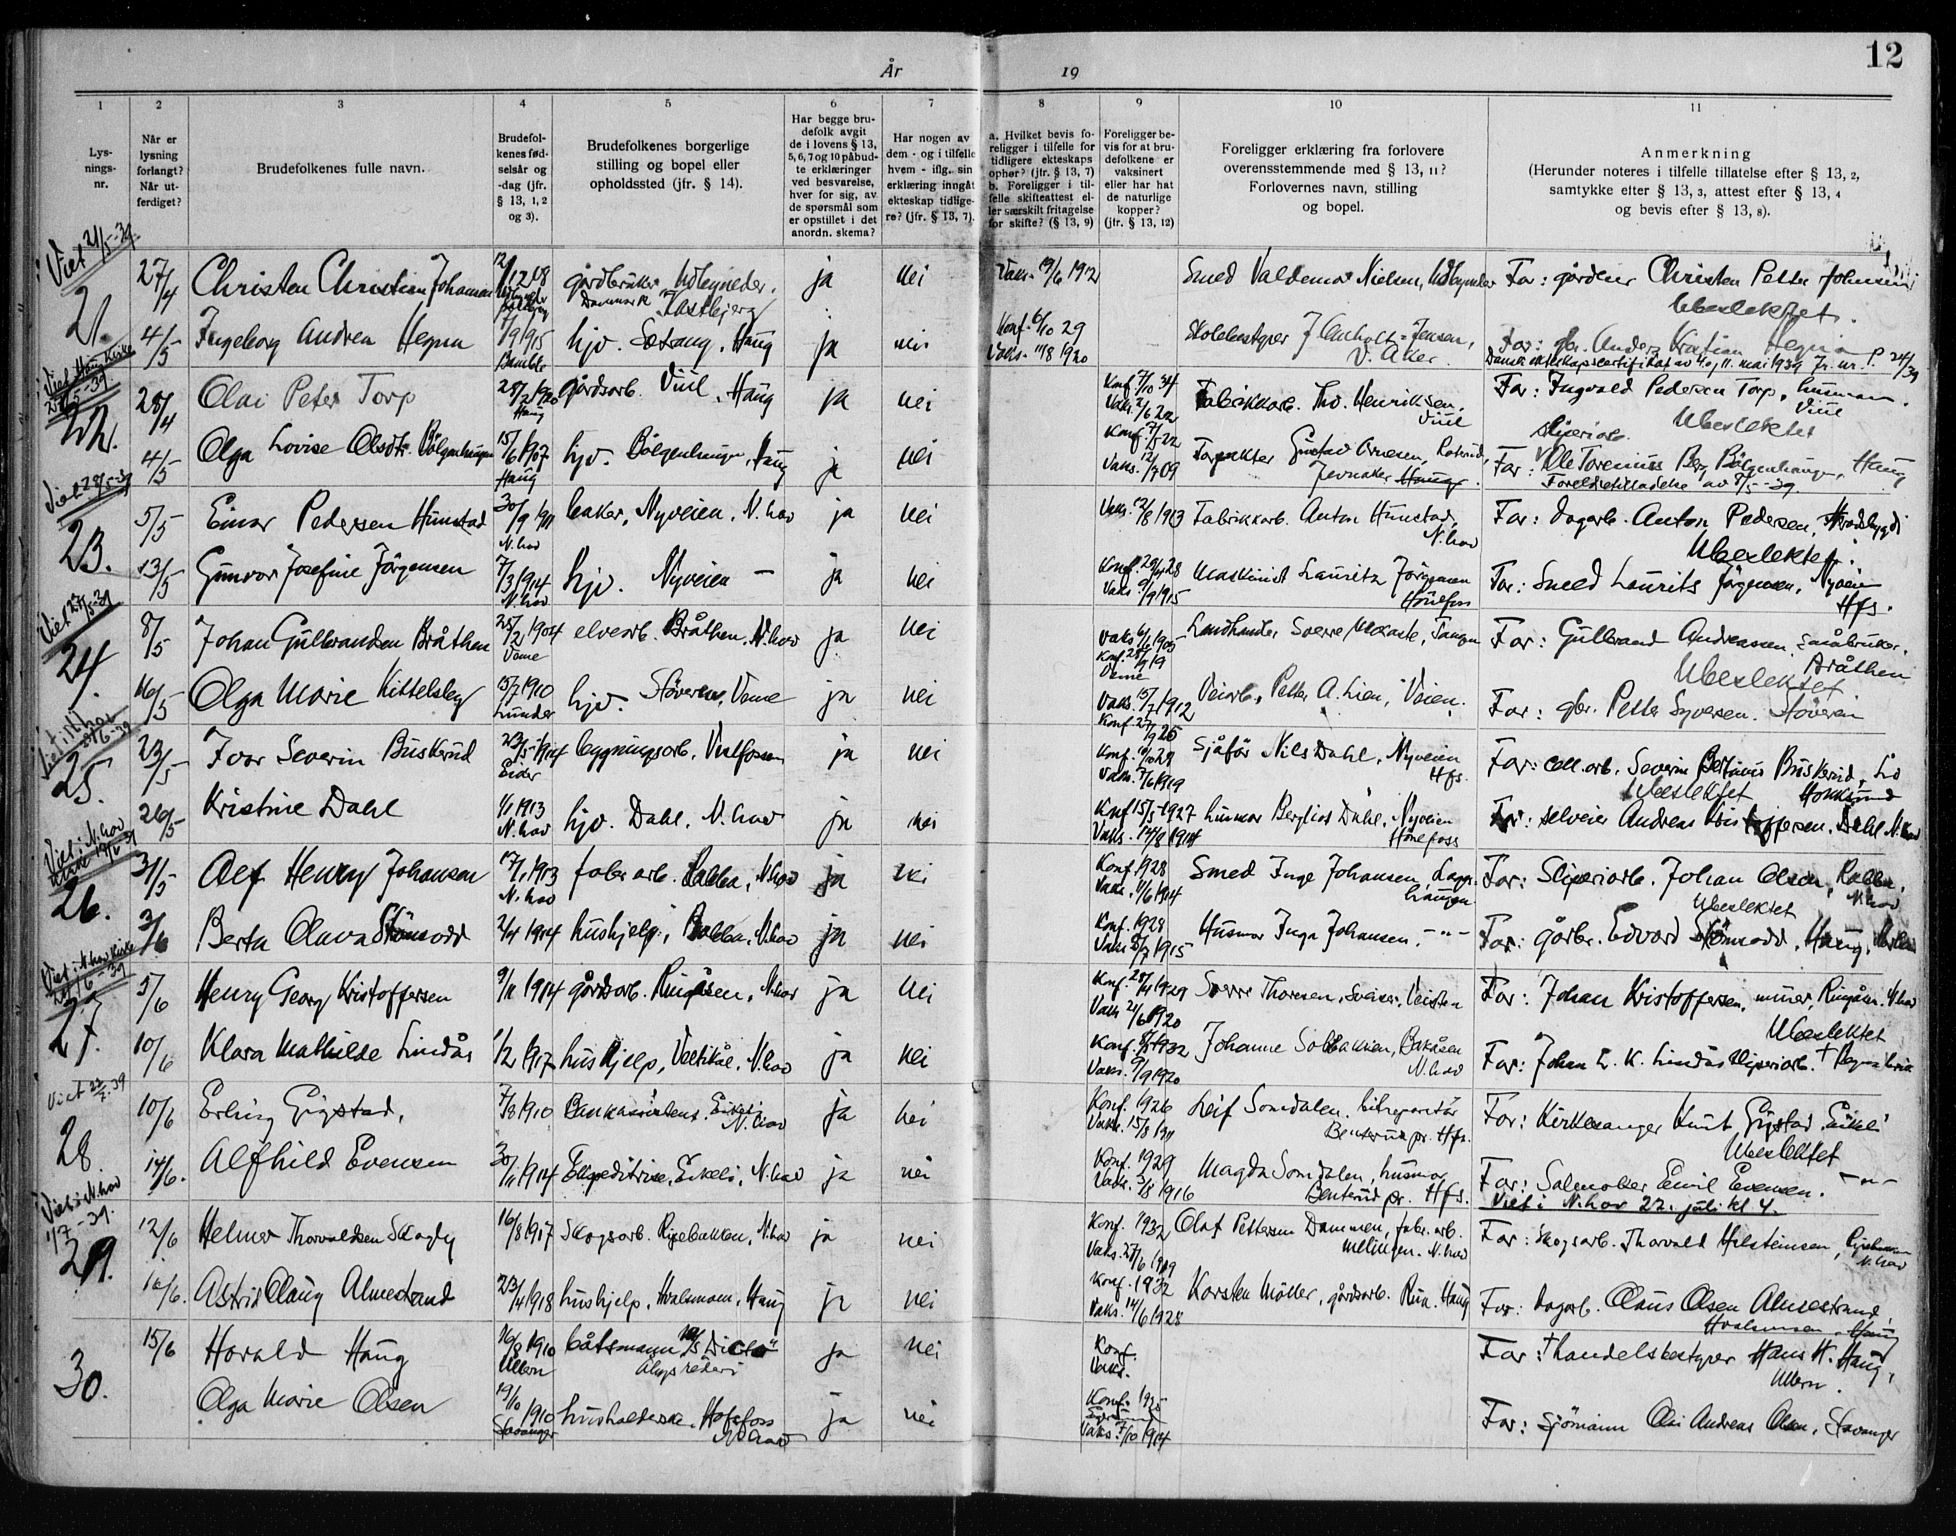 År 19
12
1
2
3
4
5
6
7
8
9
10
11
Lys-
nings-
nr.
Når er
lysning
forlangt?
Når ut-
ferdiget?
Brudefolkenes fulle navn.
Brudefol-
kenes fød-
selsår og
-dag (jfr.
§ 13, 1, 2
og 3).
Brudefolkenes borgerlige
stilling og bopel eller
opholdssted (jfr. § 14).
Har begge bru-
defolk avgit
de i lovens § 13,
5, 6, 7 og 10 påbud-
te erklæringer
ved besvarelse,
hver for sig, av
de spørsmål som
er opstillet i det
anordn. skema?
Har nogen av
dem - og i tilfelle
hvem - iflg. sin
erklæring inngått
ekteskap tidlige-
re? (jfr. § 13, 7).
a. Hvilket bevis fo-
religger i tilfelle for
tidligere ekteskaps
ophør? (jfr. § 13, 7)
b. Foreligger i til-
felle skifteattest el-
ler særskilt fritagelse
for skifte? (§ 13, 9)
Foreligger be-
vis for at bru-
defolkene er
vaksinert
eller har hat
de naturlige
kopper?
(jfr. § 13, 12)
Foreligger erklæring fra forlovere
overensstemmende med § 13, 11?
Forlovernes navn, stilling
og bopel.
Anmerkning
(Herunder noteres i tilfelle tillatelse efter § 13, 2,
samtykke efter § 13, 3, attest efter § 13, 4
og bevis efter § 13, 8).
Viet 21/5-39
21. 27/4 Christen Christian Johansen gårdbruker ja nei Vaks. 1912 Smed Valdemar Nielsen, For: gårdeier Christen Petter Johansen
Danmark
Ubeslektet.
4/5 Ingeborg Andrea Hegna 7/9 1915 hjv. Setrang, Haug ja nei Konf. 6/10 29 Skolebestyrer J. Anholt-Jensen, For: gbr. Anders Kristian Hegna
Bamble Vaks. 11/8 1920 V. Aker Dansk ekteskapscertifikat av 11. mai 1939 Jr. nr. P. 24/39
22. 28/4 Olai Peter Torp 28/2 1910 gårdsarb. Viul, Haug ja nei Konf. 7/10 34 Fabrikkarb. Tho. Henriksen, Viul For: Ingvald Pedersen Torp, husmann, Viul
Haug Ubeslektet
4/5 Olga Lovise Olsdtr. Bölgenhaugen 15/6 1907 hjv. Bölgenhaugen, Haug ja nei Konf. 7/5 22 Forpakter Gustav Arnesen, Jevnaker For: Ole Torenius Berg Bölgenhaugen, Haug
Haug Vaks. 12/7 09 Foreldretilladelse av 8/5-39.
Viet 28/5-39
23. 5/5 Einar Pedersen Hunstad 30/9 1911 baker, Nyveien, N.hov ja nei Vaks. 22/8 1913 Fabrikkarb. Anton Hunstad, N.hov For: dagarb. Anton Pedersen,
N.hov Ubeslektet.
13/5 Gunvor Josefine Jörgensen 7/3 1914 hjv. Nyveien — ja nei Konf. 29/4 28 Maskinist Lauritz Jörgensen Hönefoss For: Smed Laurits Jörgensen, Nyveien Hfs.
N.hov Vaks. 9/9 1915
Viet 27/5-39
24. 8/5 Johan Gulbrandsen Bråthen 25/2 1904 elvearb. Bråthen, N.hov ja nei Vaks. 6/6 1905 For: Gulbrand Andreassen, småbruker, Bråthen
Veme Konf. 28/9 19 Ubeslektet
Veme
16/5 Olga Marie Kittelsby 15/7 1910 hjv. Stöveren, Veme ja nei Vaks. 15/7 1912 Veiarb. Petter A. Lien, Veien. For: gbr. Petter Syversen. Stöveren
Lunder Konf. 27/9 25
25. 23/5 Ivar Severin Buskerud 23/5 1914 bygningsarb. Vealfossen ja nei Konf. 1928 Sjåför Nils Dahl, Nyveien Hfs. For: cell.arb. Severin Bertinius Buskerud, Hokksund
Eiker Vaks. 7/6 1919 Ubeslektet
26/5 Kristine Dahl 1/1 1913 hjv. Dahl. N.hov ja nei Konf. 15/5 1927 husmor Bergliot Dahl, Nyveien Hönefoss For: selveier Andreas Kristoffersen, Dahl N.hov
N.hov Vaks. 14/8 1914
Viet i N.hov
26. 31/5 Alf Henry Johansen 17/1 1913 fabr.arb. Rabba, N.hov ja nei Konf. 1928 Smed Inge Johansen, For: Sliperiarb. Johan Olsen, Rabba, N.hov
N.hov Vaks. 11/6 1914 Ubeslektet
3/6 Berta Olava Stömsodd 2/4 1914 hushjelp, Rabba, N.hov ja nei Konf. 1928 Husmor Inga Johansen. — " — For: gårbr. Edvard Stömsodd, Haug,
Vaks. 8/7 1915
Viet i N.hov kirke
24/6-39
27. 5/6 Henry Georg Kristoffersen 9/11 1914 gårdsarb. Ringåsen, N.hov ja nei Konf. 1929 Sverre Thoresen, Sveiser, Veisten For: Johan Kristoffersen, murer, Ringåsen. N.hov
Vaks. 21/6 1920 Ubeslektet
10/6 Klara Mathilde Lindås 11/2 1917 hushjelp, Veltikåe, N.hov ja nei Konf. 1932 Johanne Solbakken, Bakåsen N.hov For: Johan L. K. Lindås sliperiarb.
Vaks. 7/9 1920
Viet 22/7-39
28. 10/6 Erling Gigstad, 7/8 1910 Bankassistent. Eikeli N.hov ja nei Konf. 1926 Leif Somdalen, bilreparatör Benterud pr. Hfs. For: Kirkesanger Knut Gigstad, Eikeli
Vaks. 15/8 1911 Ubeslektet
14/6. Alfhild Evensen 30/11 1914 Ekspeditrise, Eikeli, N.hov ja nei Konf. 1929 Magda Somdalen, husmor Benterud pr. Hfs. For: Salmaker Emil Evensen. — " —
Vaks. 3/8 1916 Viet i N.hov 22. juli kl 4.
Viet i N.hov
1/7-39.
29. 12/6 Helmer Thorvaldsen Skagby 16/8 1917 Skogsarb. Ripebakken, N.hov ja nei Konf. 1932 Olaf Pettersen Dammen, fabr.arb. N.hov For: Skogsarb. Thorvald Helsteinsen, N.hov
Vaks. 27/6 1919
16/6. Astrid Olaug Almestrand 23/4 1918 hushjelp, Hvalsmoen, Haug ja nei Konf. 1932 Karsten Möller, gårdsarb. Rua. Haug For: dagarb. Claus Olsen Almestrand, Hvalsmoen, Haug
Vaks. 14/6 1928
30. 15/6 Harald Haug 16/8 1910 båtsmann ja nei Konf. For: † handelsbestyrer Hans H. Haug, Ullern.
Ullern Vaks.
Olga Marie Olsen 19/10 1910 husholderske, Hofsfoss N.hov ja nei Konf. 1925 For: Sjömann Olai Andreas Olsen, Stavanger
Stavanger Vaks. 7/10 1914